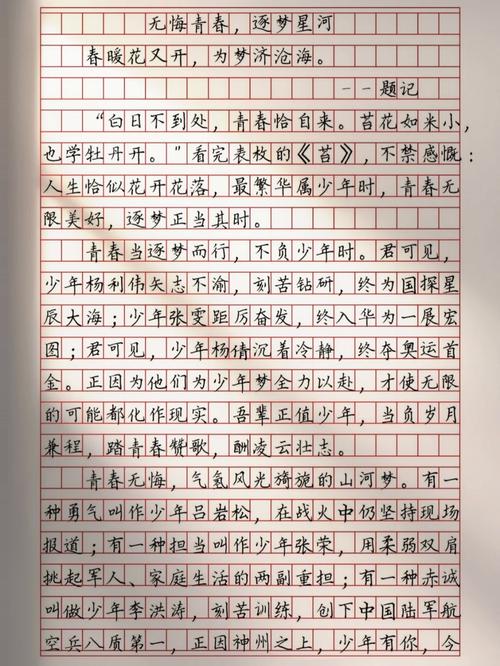 无悔青春，逐梦星河
春暖花又开，为梦济沧海。
--题记
“白日不到处，青春恰自来。苔花如米小，
也学牡丹开。”看完袁枚的《苔》，不禁感慨：
人生恰似花开花落，最繁华属少年时，青春无
限美好，逐梦正当其时。
青春当逐梦而行，不负少年时。君可见，
少年杨利伟矢志不渝，刻苦钻研，终为国探星
辰大海；少年张雯距厉奋发，终入华为一展宏
图；君可见，少年杨倩沉着冷静，终夺奥运首
金。正因为他们为少年梦全力以赴，才使无限
的可能都化作现实。吾辈正值少年，当负岁月
兼程，踏青春赞歌，酬凌云壮志。
青春无悔，气氤风光旖旎的山河梦。有一
种勇气叫作少年吕岩松，在战火中仍坚持现场
报道；有一种担当叫作少年张荣，用柔弱双肩
挑起军人、家庭生活的两副重担；有一种赤诚
叫做少年李洪涛，刻苦训练，创下中国陆军航
空兵八质第一，正因神州之上，少年有你，今